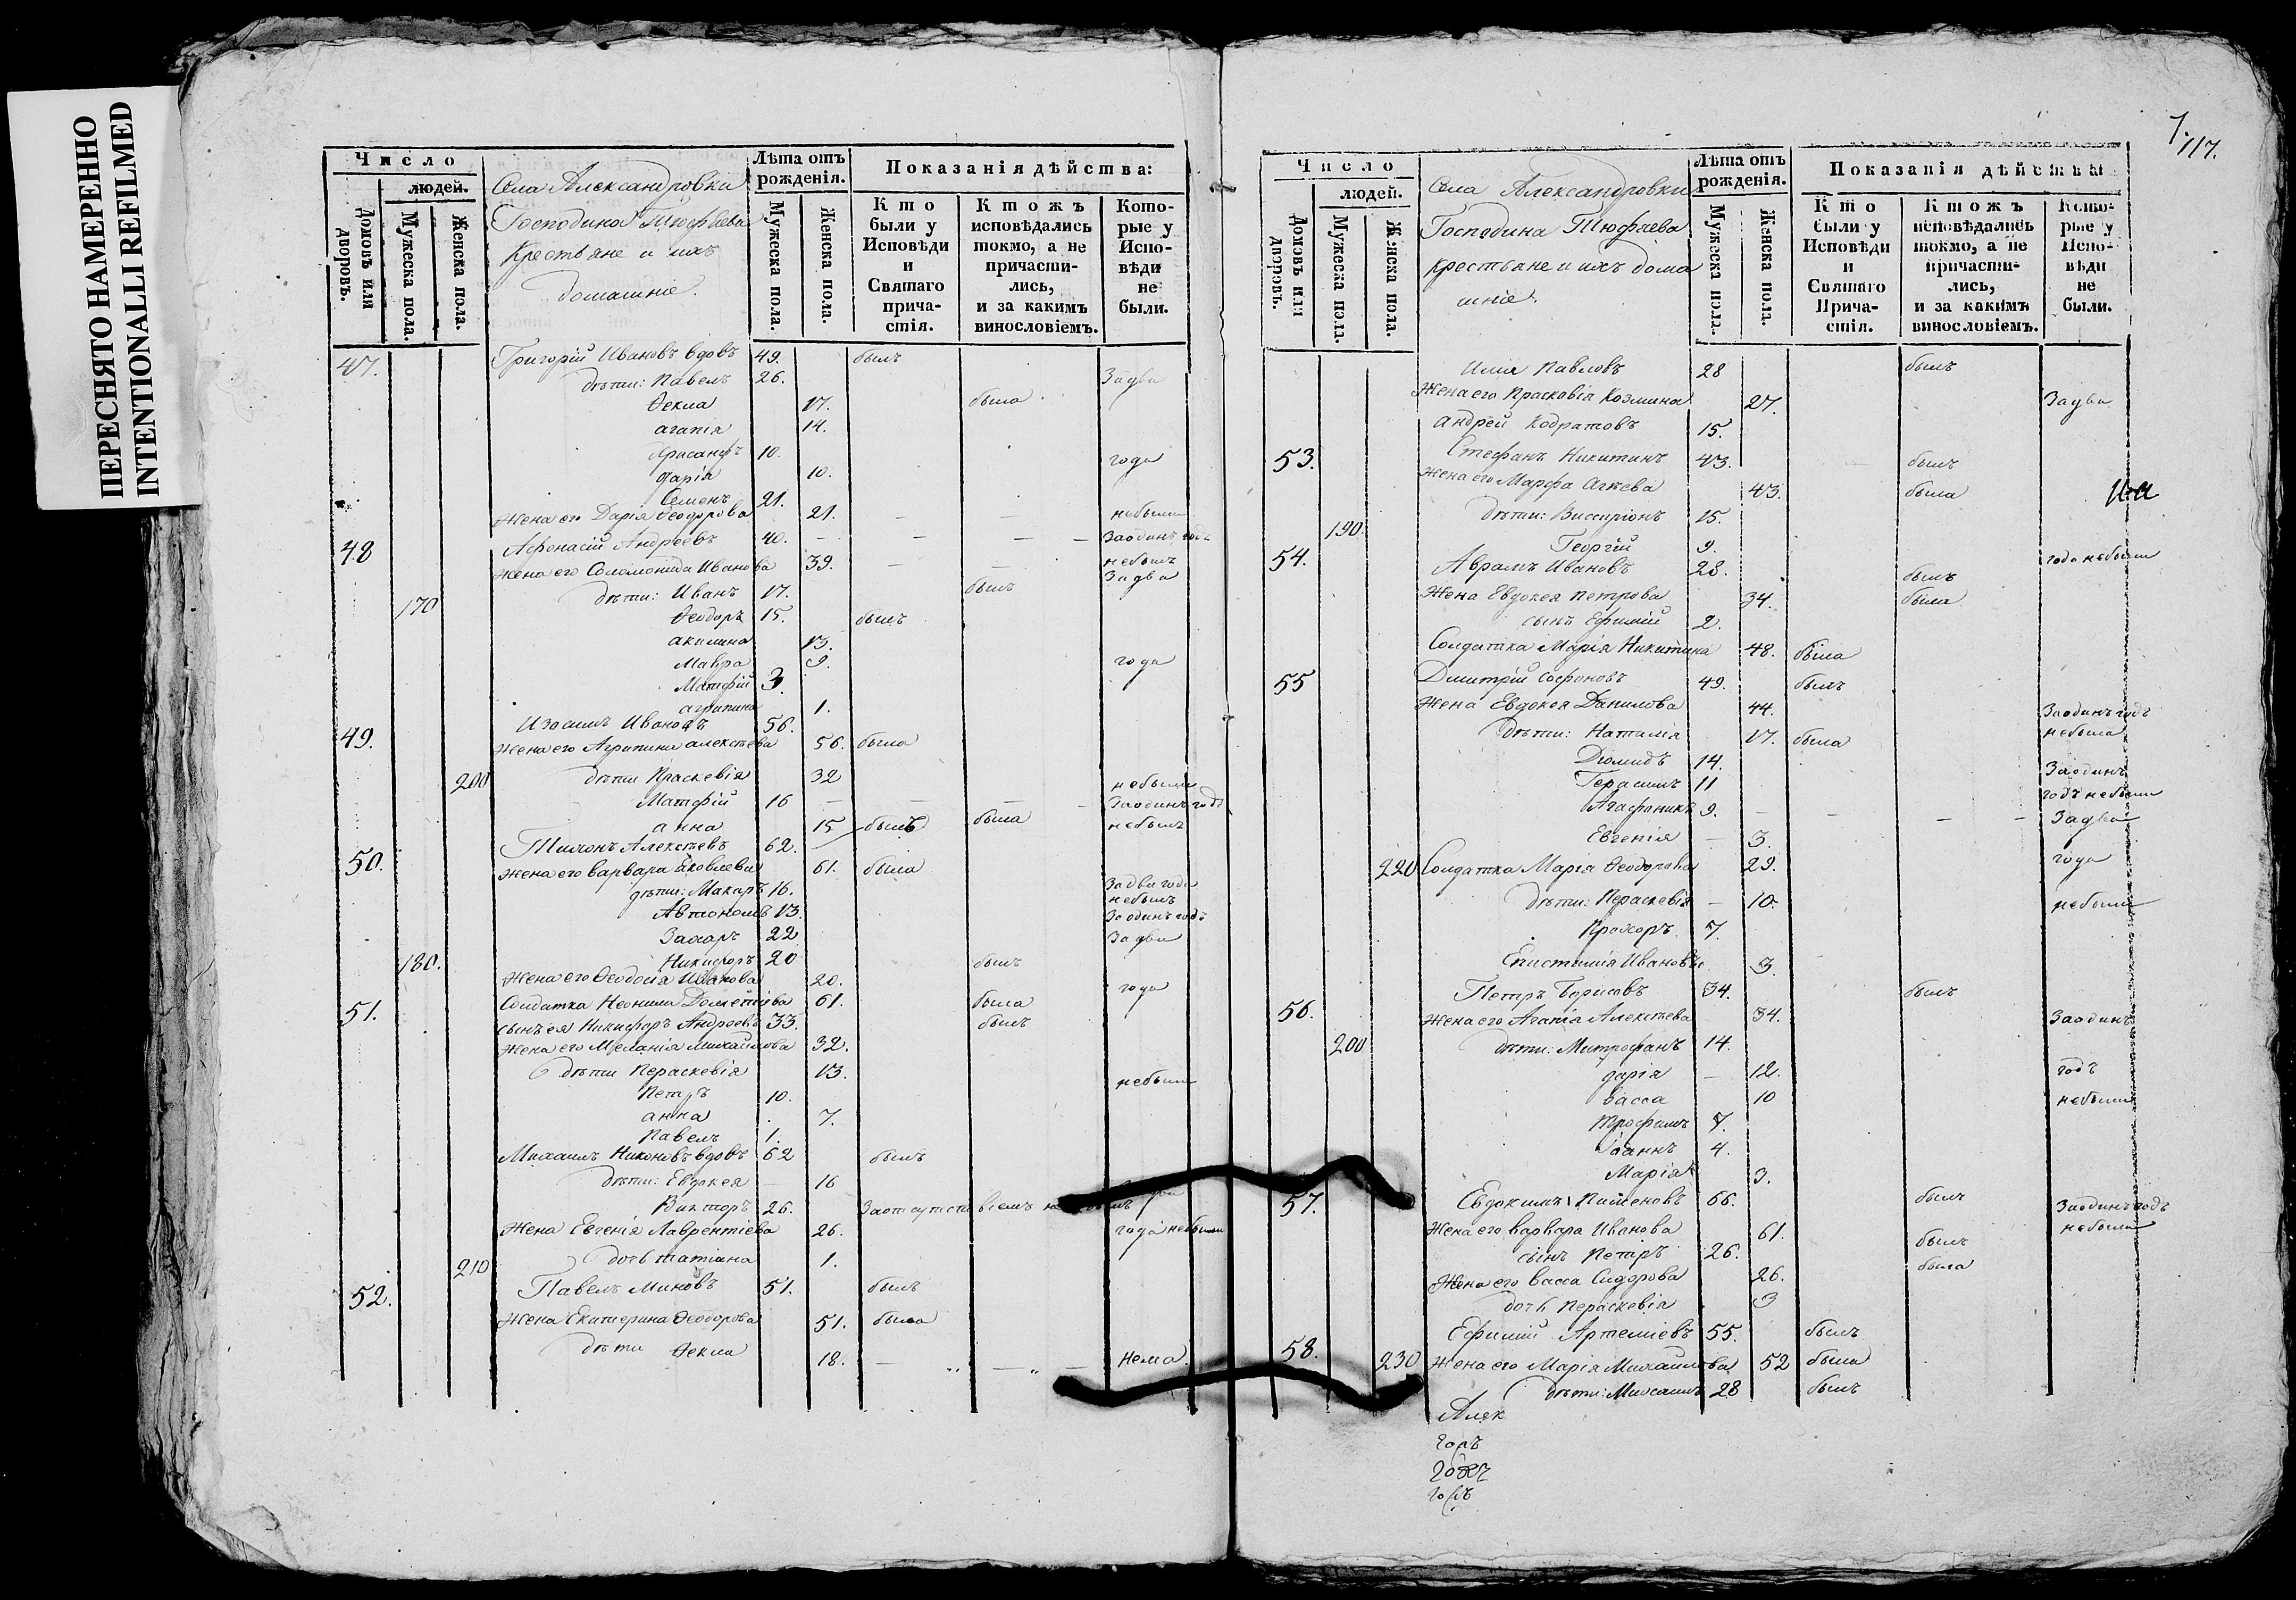 ПЕРЕСНЯТО НАМЕРЕННО
INTENTIONALLI REFILMED
Число
людей.
Домовъ или дворовъ.
Мужеска пола.
Женска пола.
Села Александровки
Господина Тюфяева
Крестьяне и ихъ
домашніе.
Лѣта отъ рожденія.
Мужеска пола.
Женска пола.
Показанія дѣйства:
Кто были у Исповѣди и Святаго причастія.
Ктожъ исповѣдались токмо, а не причастились, и за какимъ винословіемъ.
Которые у Исповѣди не были.
47. Григорій Ивановъ вдовъ 49. былъ
дѣти: Павелъ 26. За два
Ѳекла 17. была
агапія 14.
Хрисанфъ 10. года
дарія 10.
Семенъ 21.
Жена его Дарія Ѳеодорова 21. — — небыли
48 Афонасій Андреевъ 40. — — — Заодинъ годъ
жена его Соломонида Иванова 39. — — небылъ
дѣти: Иванъ 17. былъ За два
170 Ѳеодоръ 15. былъ
акилина 13.
Мавра 9. года
Матфій 3.
агрипина 1.
49. Изосимъ Ивановъ 56.
жена его Агрипина алексѣева 56. была
200 дѣти Праскевія 32 небыли
Матфій 16 — — — Заодинъ годъ
анна 15 былъ была небылъ
50. Тихонъ Алексѣевъ 62.
жена его варвара Яковлева 61. была
дѣти: Макаръ 16. За два года
Автономъ 13. небылъ
Заодинъ годъ
Захаръ 22 За два
180. Никифоръ 20 былъ
жена его Ѳеодосія Иванова 20.
51. Солдатка Неонила Дометіева 61. была года
сынъ ея Никифоръ Андреевъ 33. былъ
жена его Меланія Михайлова 32.
дѣти Пераскевія 13. небыли
Петръ 10.
анна 7.
Павелъ 1.
Михаилъ Никоновъ вдовъ 62 былъ
дѣти: Евдокея — 16
Викторъ 26. Заотсутствіемъ
Жена Евгенія Лаврентіева 26. года небыли
210 дочь татіана 1.
52. Павелъ Миновъ 51. былъ
Жена Екатерина Ѳеодорова 51. была
дѣти Ѳекла 18. — — — нема.
117.
Число
людей.
Домовъ или дворовъ.
Мужеска пола.
Женска пола.
Села Александровки
Господина Тюфяева
крестьяне и ихъ дома
шніе.
Лѣта отъ рожденія.
Мужеска пола.
Женска пола.
Показанія дѣйства
Кто были у Исповѣди и Святаго Причастія.
Ктожъ исповѣдались токмо, а не причастились, и за какимъ винословіемъ.
Которые у Исповѣди не были.
Илія Павловъ 28 былъ
Жена его Прасковія Козмина 27. За два
андрей Кодратовъ 15.
53. Стефанъ Никитинъ 43. былъ
жена его Марфа 43. была
190. дѣти: Виссаріонъ 15.
Георгій 9.
54. Аврамъ Ивановъ 28. былъ года небыли
Жена Евдокея петрова 34. была
сынъ Ефимій 2.
Солдатка Марія Никитина 48. была
55 Димитрій Софроновъ 49. былъ
Жена Евдокея Данилова 44. Заодинъ годъ
дѣти: Наталія 17. была небыла
Діомидъ 14.
Герасимъ 11 Заодинъ
годъ небыли
Агафоникъ 9. — — — За два
Евгенія — 3.
220 Солдатка Марія Ѳеодорова 29. года
дѣти: Пераскевія — 10. небыли
Прохоръ 7.
Епистимія Иванова 3.
56. Петръ Борисовъ 34. былъ
жена его Агапія Алексѣева 34. Заодинъ
200 дѣти: Митрофанъ 14.
дарія — 12. годъ
васса 10 небыли
трофимъ 7.
Іоаннъ 4.
Марія 3.
57. Евдокимъ Пименовъ 66. былъ Заодинъ годъ
жена его варвара Иванова 61. небыла
сынъ Петръ 26. былъ
Жена его васса Сидорова 26. была
дочь Пераскевія 3
58. Ефимій Артеміевъ 55. былъ
230 Жена его Марія Михайлова 52 была
дѣти: Михаилъ 28 былъ
Алек